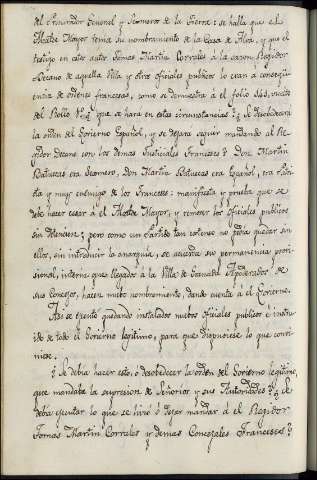 del Procurador General y Sesmeros de la Tierra: se halla que el
Alcalde Mayor tenia su nombramiento de la Casa de Alva, y que el
testigo en este autor Tomas Martin Corrales à la sazon Regidor
Decano de aquella Villa y otros oficiales publicos lo eran a consequen-
encia de ordenes francesas, como se demuestra à el folio 343, vuelto
del Rollo que se hará en estas circunstancias? ¿Se desobedecerá
la orden del Govierno Español, y se dejara seguir mandando al Re-
gidor Decano con los demas Justiciales Franceses? Don Martin
Batuecas era Sesmero, Don Martin Batuecas era Español, era Patrio-
ta y muy enemigo de los Franceses: manifiesta y prueba que se
debe hacer cesar à el Alcalde Mayor, y remover los oficiales publicos
sin dilacion; pero como un Partido tan extenso no podia quedar sin
ellos, sin introducir la anarquia, se acuerda su permanencia provi-
sional, interin que llegados à la Villa de Granada Apoderados de
sus Concejos, hacen nuebo nombramiento, dando cuenta à el Govierno.
Asi se ejecutó quedando instalados nuebos oficiales publicos è instru-
ido de todo el Govierno legitimo, para que dispusiese lo que convi-
niese.
¿Se debia hacer esto, ó desobedecer la orden del Govierno legitimo,
que mandaba la supresion de Señorios y sus Autoridades? ¿Se
debia ejecutar lo que se hizo ó dejar mandar à el Regidor
Tomas Martin Corrales y demas Concejales Franceses?